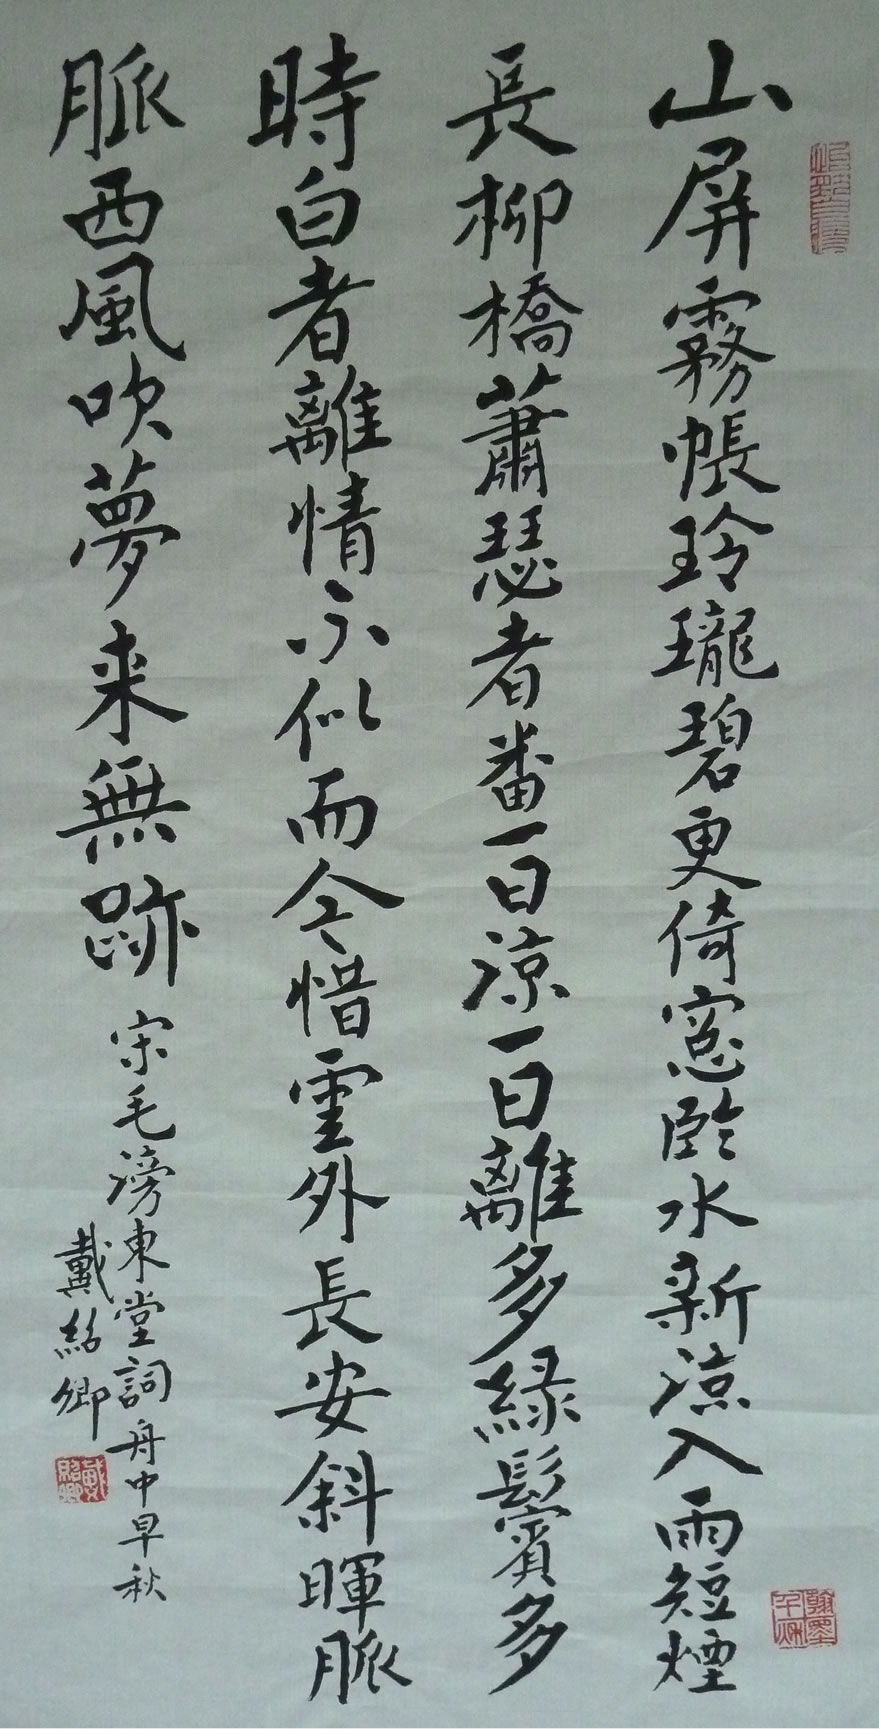 山屏霧帳玲瓏碧更倚窻臨水新涼入雨短煙
長柳橋蕭瑟者番一日涼一日離多緑鬢多
時白者離情不似而今惜雲外長安斜暉脈
脈西風吹夢来無跡
宋毛滂東堂詞舟中早秋
戴紹卿
戴紹卿
翰墨千秋